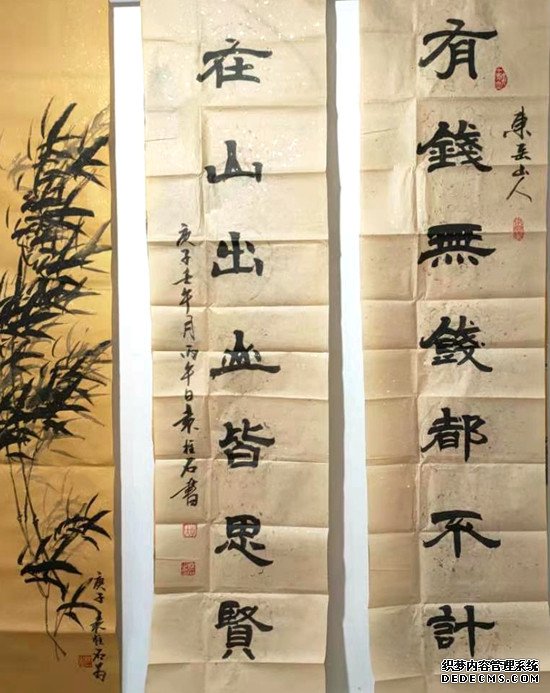 有錢無錢都不計
山人
在山出山皆思賢
庚子壬午月丙午日袁柱石書
庚子 袁柱石
织梦内容管理系统
DEDECMS.COM